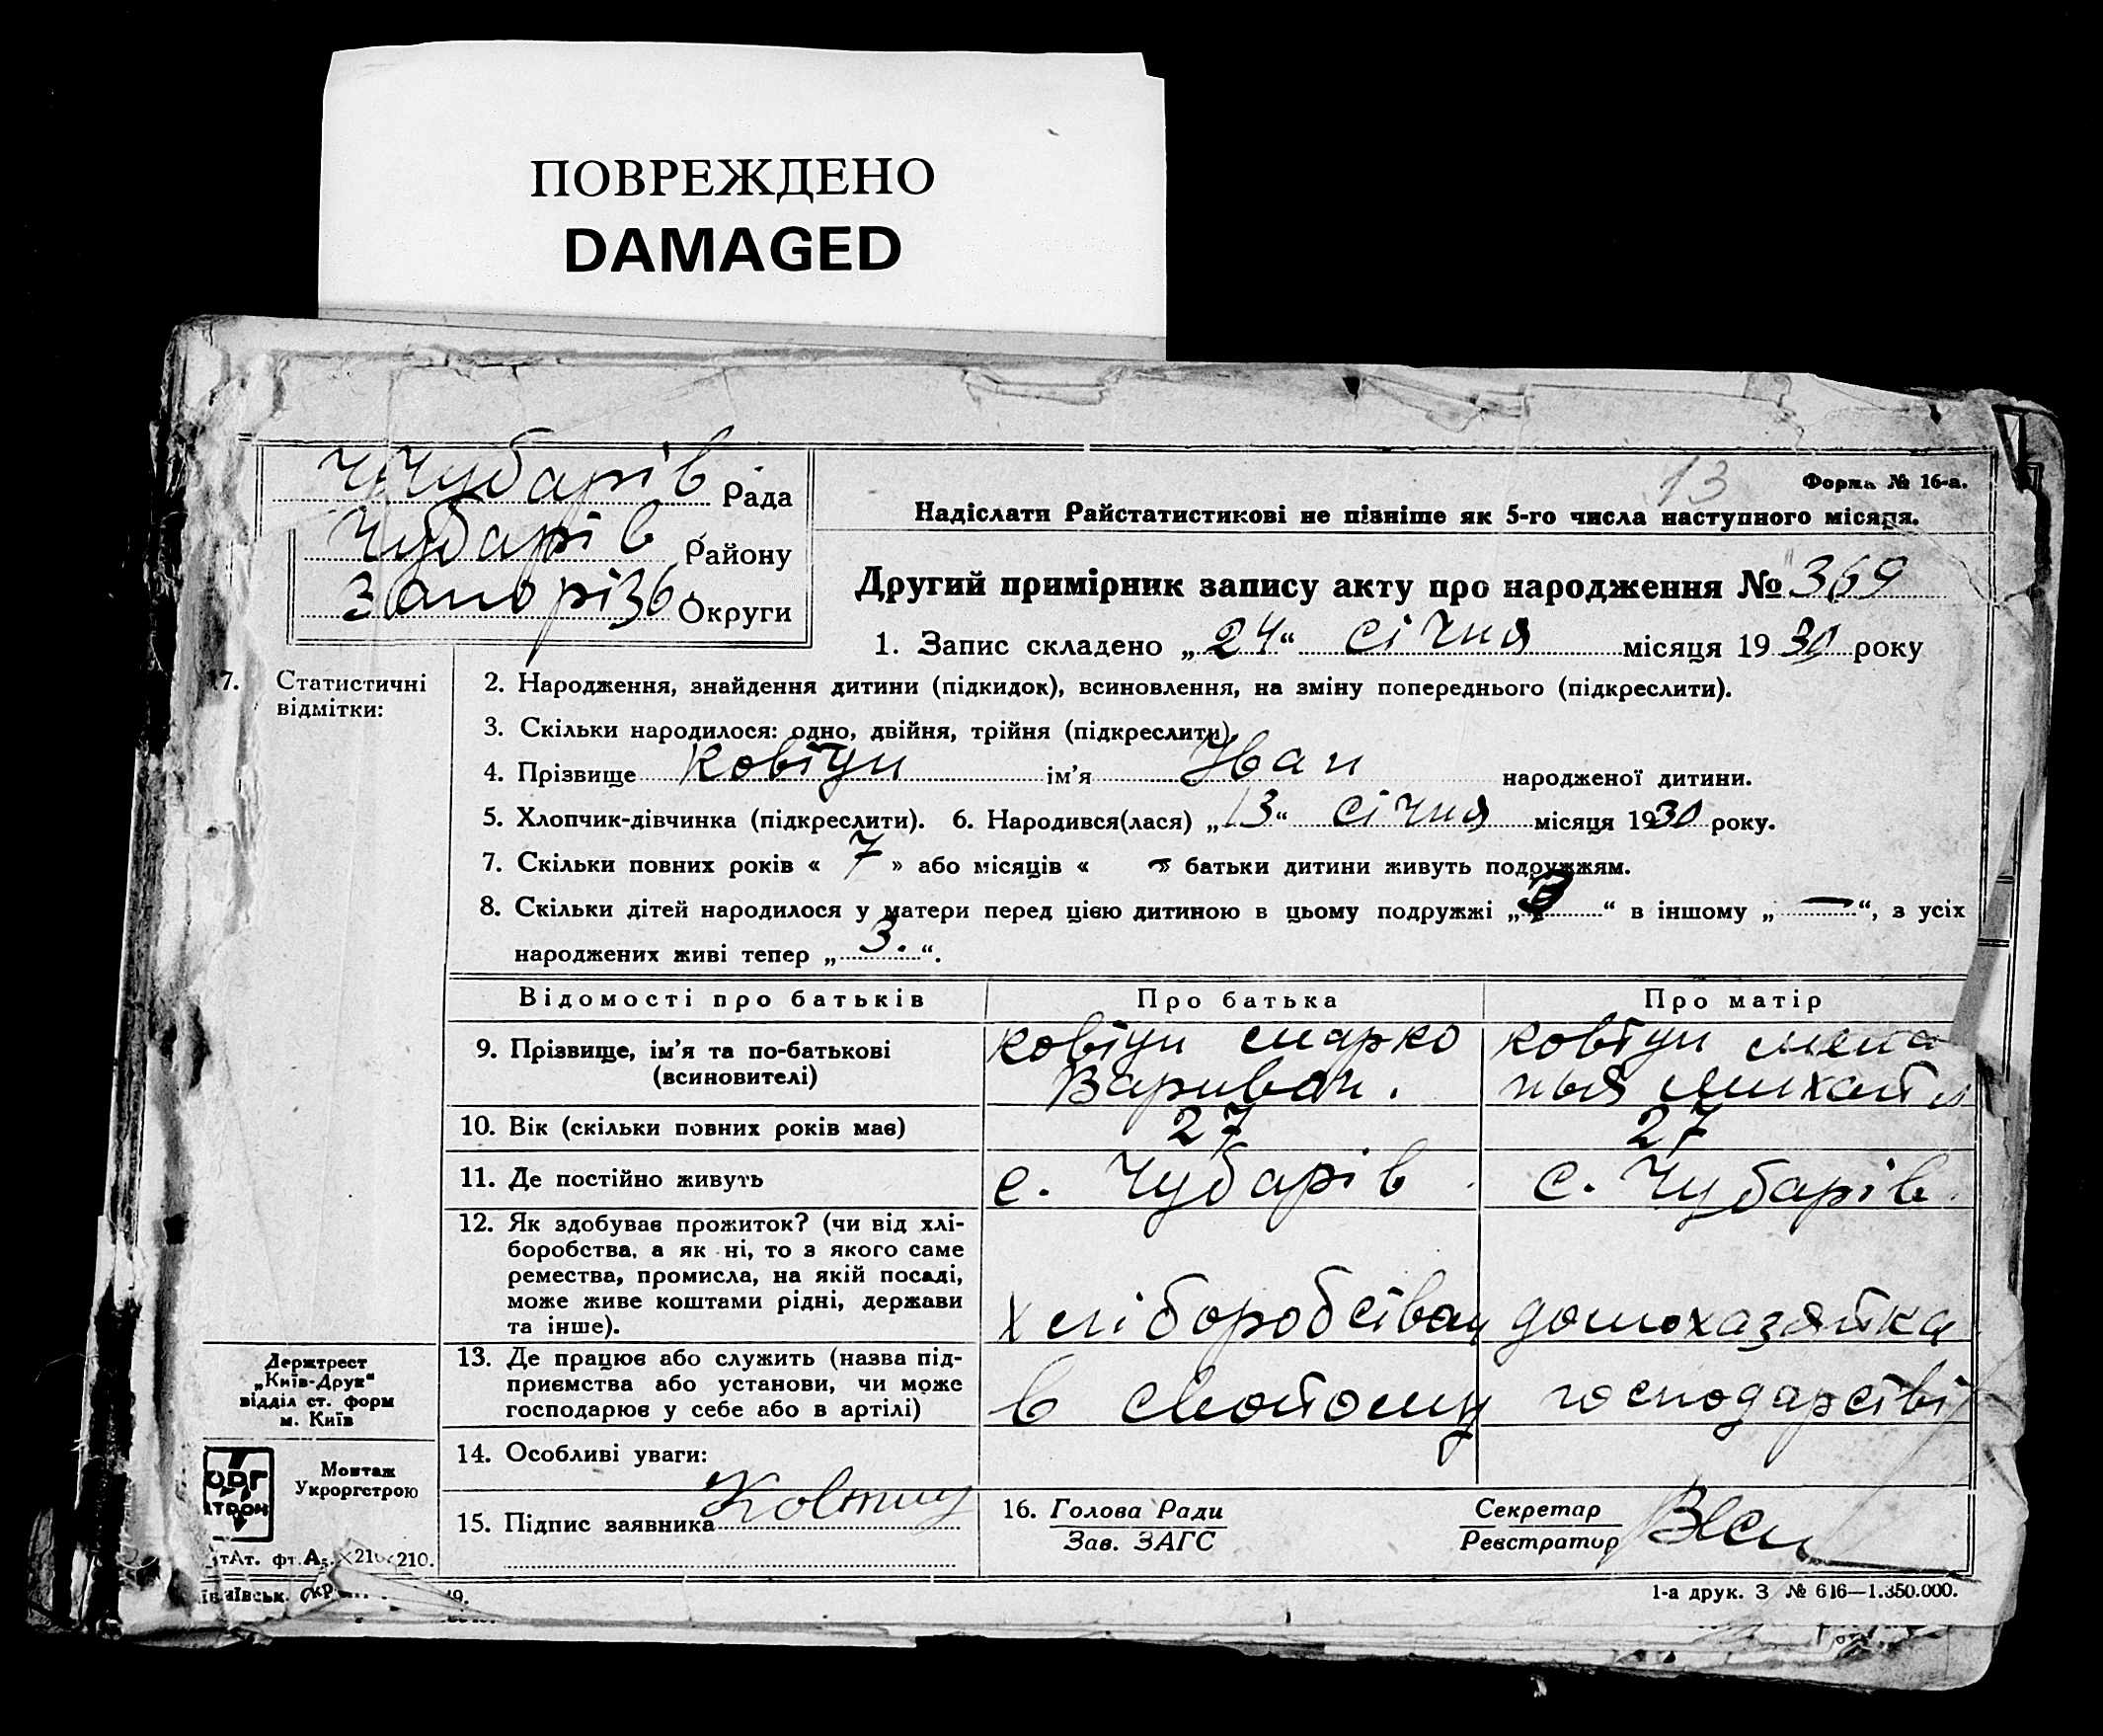 ПОВРЕЖДЕНО
DAMAGED
Чубарів Рада
Чубарів Району
Запорізь. Округи
13
Форма № 16-а.
Надіслати Райстатистикові не пізніше як 5-го числа наступного місяця.
Другий примірник запису акту про народження № 369
1. Запис складено „24“ січня місяця 1930 року
17. Статистичні
відмітки:
2. Народження, знайдення дитини (підкидок), всиновлення, на зміну попереднього (підкреслити).
3. Скільки народилося: одно, двійня, трійня (підкреслити)
4. Прізвище Ковтун ім'я Иван народженої дитини.
5. Хлопчик-дівчинка (підкреслити). 6. Народився(лася) „13“ січня місяця 1930 року.
7. Скільки повних років « 7 » або місяців « – » батьки дитини живуть подружжям.
8. Скільки дітей народилося у матери перед цією дитиною в цьому подружжі „ “ в іншому „—“, з усіх
народжених живі тепер „3.“.
Відомості про батьків Про батька Про матір
9. Прізвище, ім'я та по-батькові
(всиновителі)
Ковтун Марко
Варивон.
Ковтун Мела
ния Михайл
10. Вік (скільки повних років має) 27 27
11. Де постійно живуть с. Чубарів с. Чубарів.
12. Як здобуває прожиток? (чи від хлі-
боробства, а як ні, то з якого саме
ремества, промисла, на якій посаді,
може живе коштами рідні, держави
та інше).
Хліборобством домохазяйка
13. Де працює або служить (назва під-
приємства або установи, чи може
господарює у себе або в артілі)
в своёму господарстві
14. Особливі уваги:
15. Підпис заявника Ковтун
16. Голова Ради
Зав. ЗАГС
Секретар
Реєстратор
Держтрест
„Київ-Друк“
відділ ст. форм
м. Київ
Монтаж
Укроргстрою
фт. А5. 210.
1-а друк. З № 616—1.350.000.